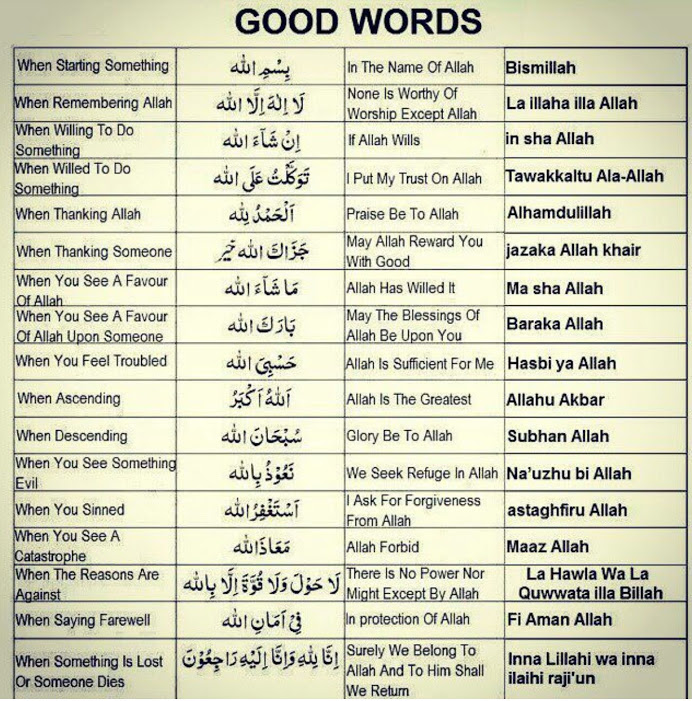 GOOD WORDS
When Starting Something
بِسْمِ الله
In The Name Of Allah
Bismillah
When Remembering Allah
لَا إِلٰهَ إِلَّا الله
None Is Worthy Of
Worship Except Allah
La illaha illa Allah
When Willing To Do
Something
اِنْ شَآءَ الله
If Allah Wills
in sha Allah
When Willed To Do
Something
تَوَكَّلْتُ عَلَى الله
I Put My Trust On Allah
Tawakkaltu Ala-Allah
When Thanking Allah
اَلْحَمْدُ لِله
Praise Be To Allah
Alhamdulillah
When Thanking Someone
جَزَاكَ الله خَيْر
May Allah Reward You
With Good
jazaka Allah khair
When You See A Favour
Of Allah
مَا شَآءَ الله
Allah Has Willed It
Ma sha Allah
When You See A Favour
Of Allah Upon Someone
بَارَكَ الله
May The Blessings Of
Allah Be Upon You
Baraka Allah
When You Feel Troubled
حَسْبِيَ الله
Allah Is Sufficient For Me
Hasbi ya Allah
When Ascending
اَللهُ اَكْبَرُ
Allah Is The Greatest
Allahu Akbar
When Descending
سُبْحَانَ الله
Glory Be To Allah
Subhan Allah
When You See Something
Evil
نَعُوْذُ بِالله
We Seek Refuge In Allah
Na'uzhu bi Allah
When You Sinned
اَسْتَغْفِرُ الله
I Ask For Forgiveness
From Allah
astaghfiru Allah
When You See A
Catastrophe
مَعَاذَ الله
Allah Forbid
Maaz Allah
When The Reasons Are
Against
لَا حَوْلَ وَلَا قُوَّةَ اِلَّا بِالله
There Is No Power Nor
Might Except By Allah
La Hawla Wa La
Quwwata illa Billah
When Saying Farewell
فِيْ اَمَانِ الله
In protection Of Allah
Fi Aman Allah
When Something Is Lost
Or Someone Dies
اِنَّا لِلهِ وَاِنَّا اِلَيْهِ رَاجِعُوْنَ
Surely We Belong To
Allah And To Him Shall
We Return
Inna Lillahi wa inna
ilaihi raji'un